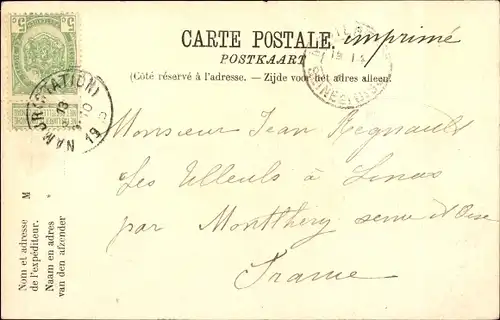 CARTE POSTALE. imprimé
POSTKAART
(Côté réservé à l'adresse. - Zijde voor het adres alleen)
5 5
NAMUR (STATION)
13
10
19
Monsieur Jean Regnault
Les Tilleuls à Linas
par Montlhéry Seine et Oise
France
Nom et adresse M
de l'expéditeur.
Naam en adres
van den afzender